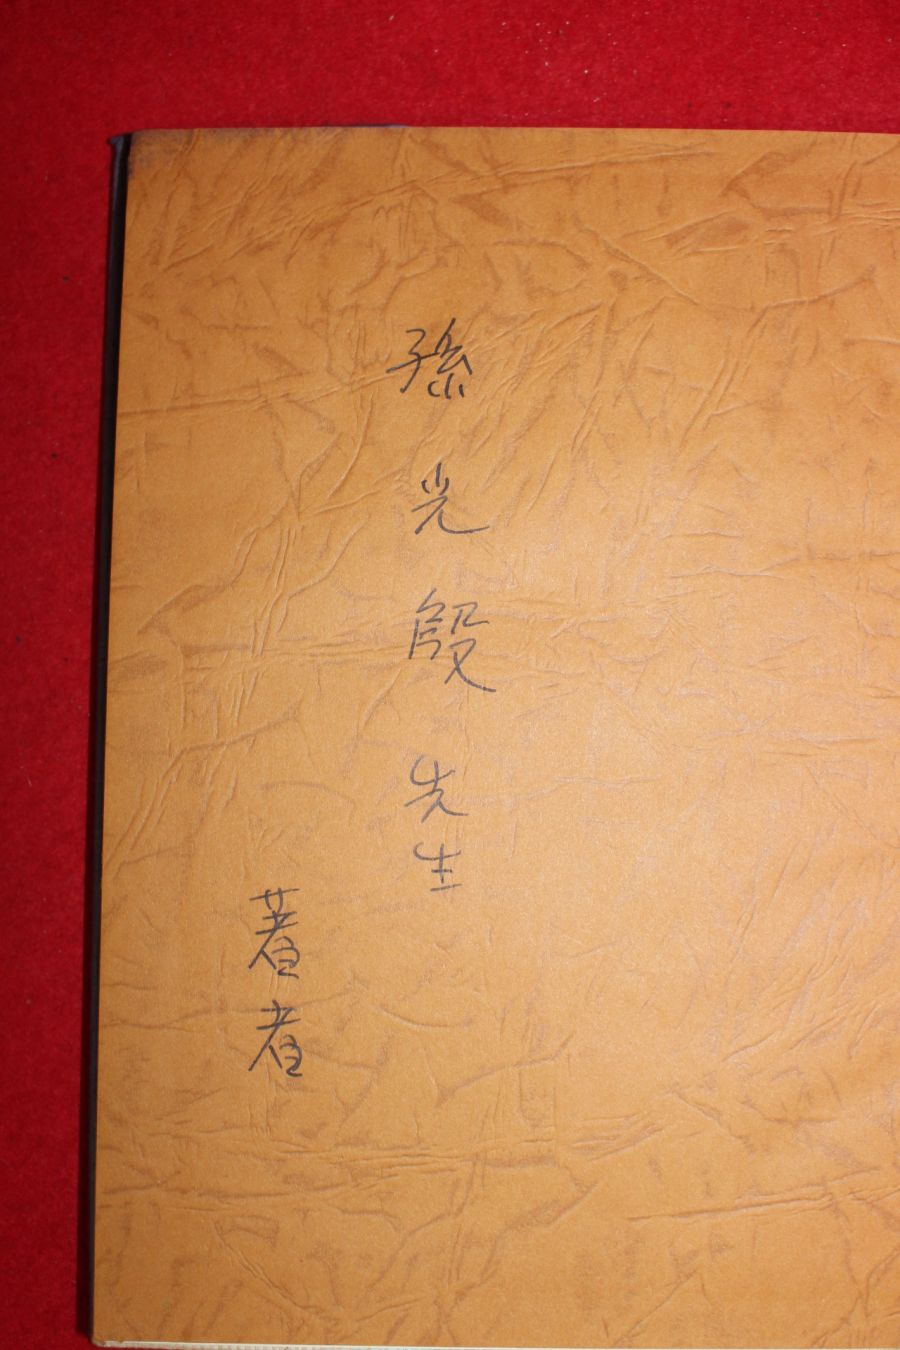 孫光殷先生
著者